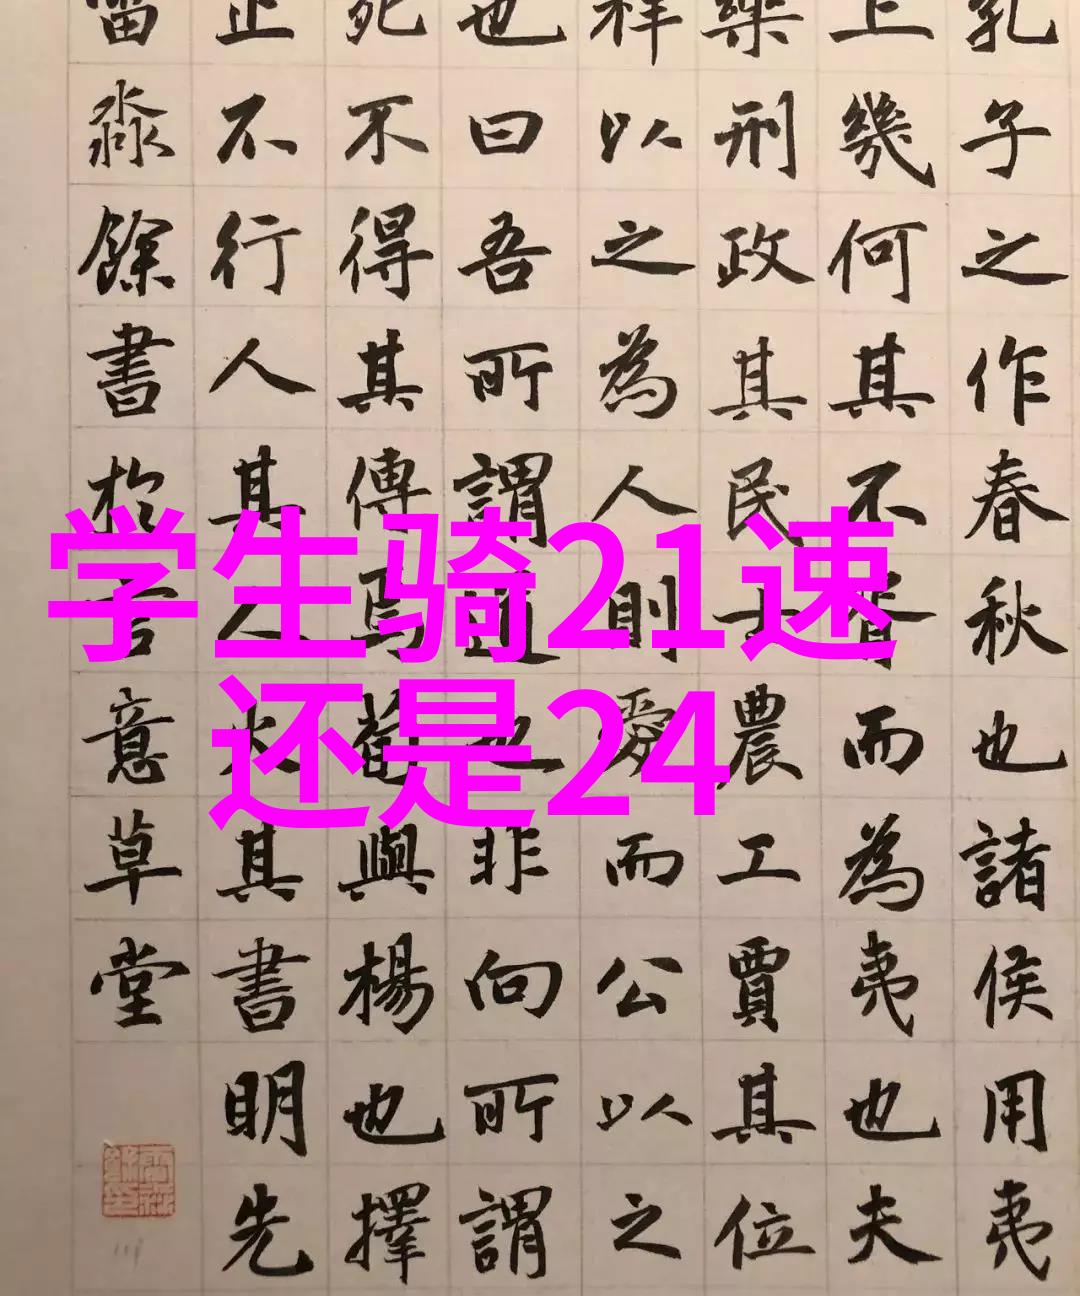 孔子之作春秋也諸侯用夷
上幾何其不胥而為夷也夫
樂刑政其民士農工賈其位
祥以之為人則愛而公以之
也曰吾所謂道也非向所謂
死不得其傳焉荀與楊也擇
止不行人其人火其書明先
淼餘書於意草堂
学生骑21速
还是24